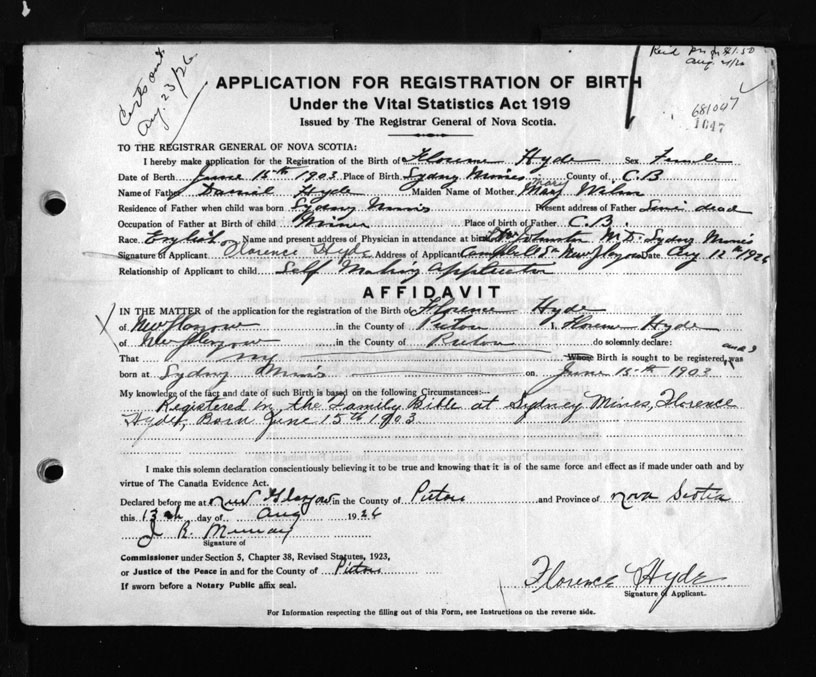 Certs out
Aug. 23/26
$1.50
Aug
681047
1047
APPLICATION FOR REGISTRATION OF BIRTH
Under the Vital Statistics Act 1919
Issued by The Registrar General of Nova Scotia.
TO THE REGISTRAR GENERAL OF NOVA SCOTIA:
I hereby make application for the Registration of the Birth of Florence Hyde Sex Female
Date of Birth June 15th 1903 Place of Birth Sydney Mines County of C.B
Name of Father Daniel Hyde Maiden Name of Mother Mary
Residence of Father when child was born Sydney Mines Present address of Father Since dead
Occupation of Father at Birth of child Miner Place of birth of Father C.B.
Race English Name and present address of Physician in attendance at birth Dr Johnston M.D. Sydney Mines
Signature of Applicant Florence Hyde Address of Applicant Campbell St New Glasgow Date Aug 12th 1926
Relationship of Applicant to child Self Making Application
AFFIDAVIT
IN THE MATTER of the application for the registration of the Birth of Florence Hyde
of New Glasgow in the County of Pictou I, Florence Hyde
of New Glasgow in the County of Pictou do solemnly declare:
That my Whose Birth is sought to be registered, was
born at Sydney Mines on June 15th 1903
My knowledge of the fact and date of such Birth is based on the following Circumstances:—
Registered in the Family Bible at Sydney Mines, Florence
Hyde, Born June 15th 1903
I make this solemn declaration conscientiously believing it to be true and knowing that it is of the same force and effect as if made under oath and by
virtue of The Canada Evidence Act.
Declared before me at New Glasgow in the County of Pictou and Province of Nova Scotia
this 13th day of Aug 1926
J R. Murray
Signature of
Commissioner under Section 5, Chapter 38, Revised Statutes, 1923,
or Justice of the Peace in and for the County of Pictou
If sworn before a Notary Public affix seal.
Florence Hyde
Signature of Applicant.
For Information respecting the filling out of this Form, see Instructions on the reverse side.